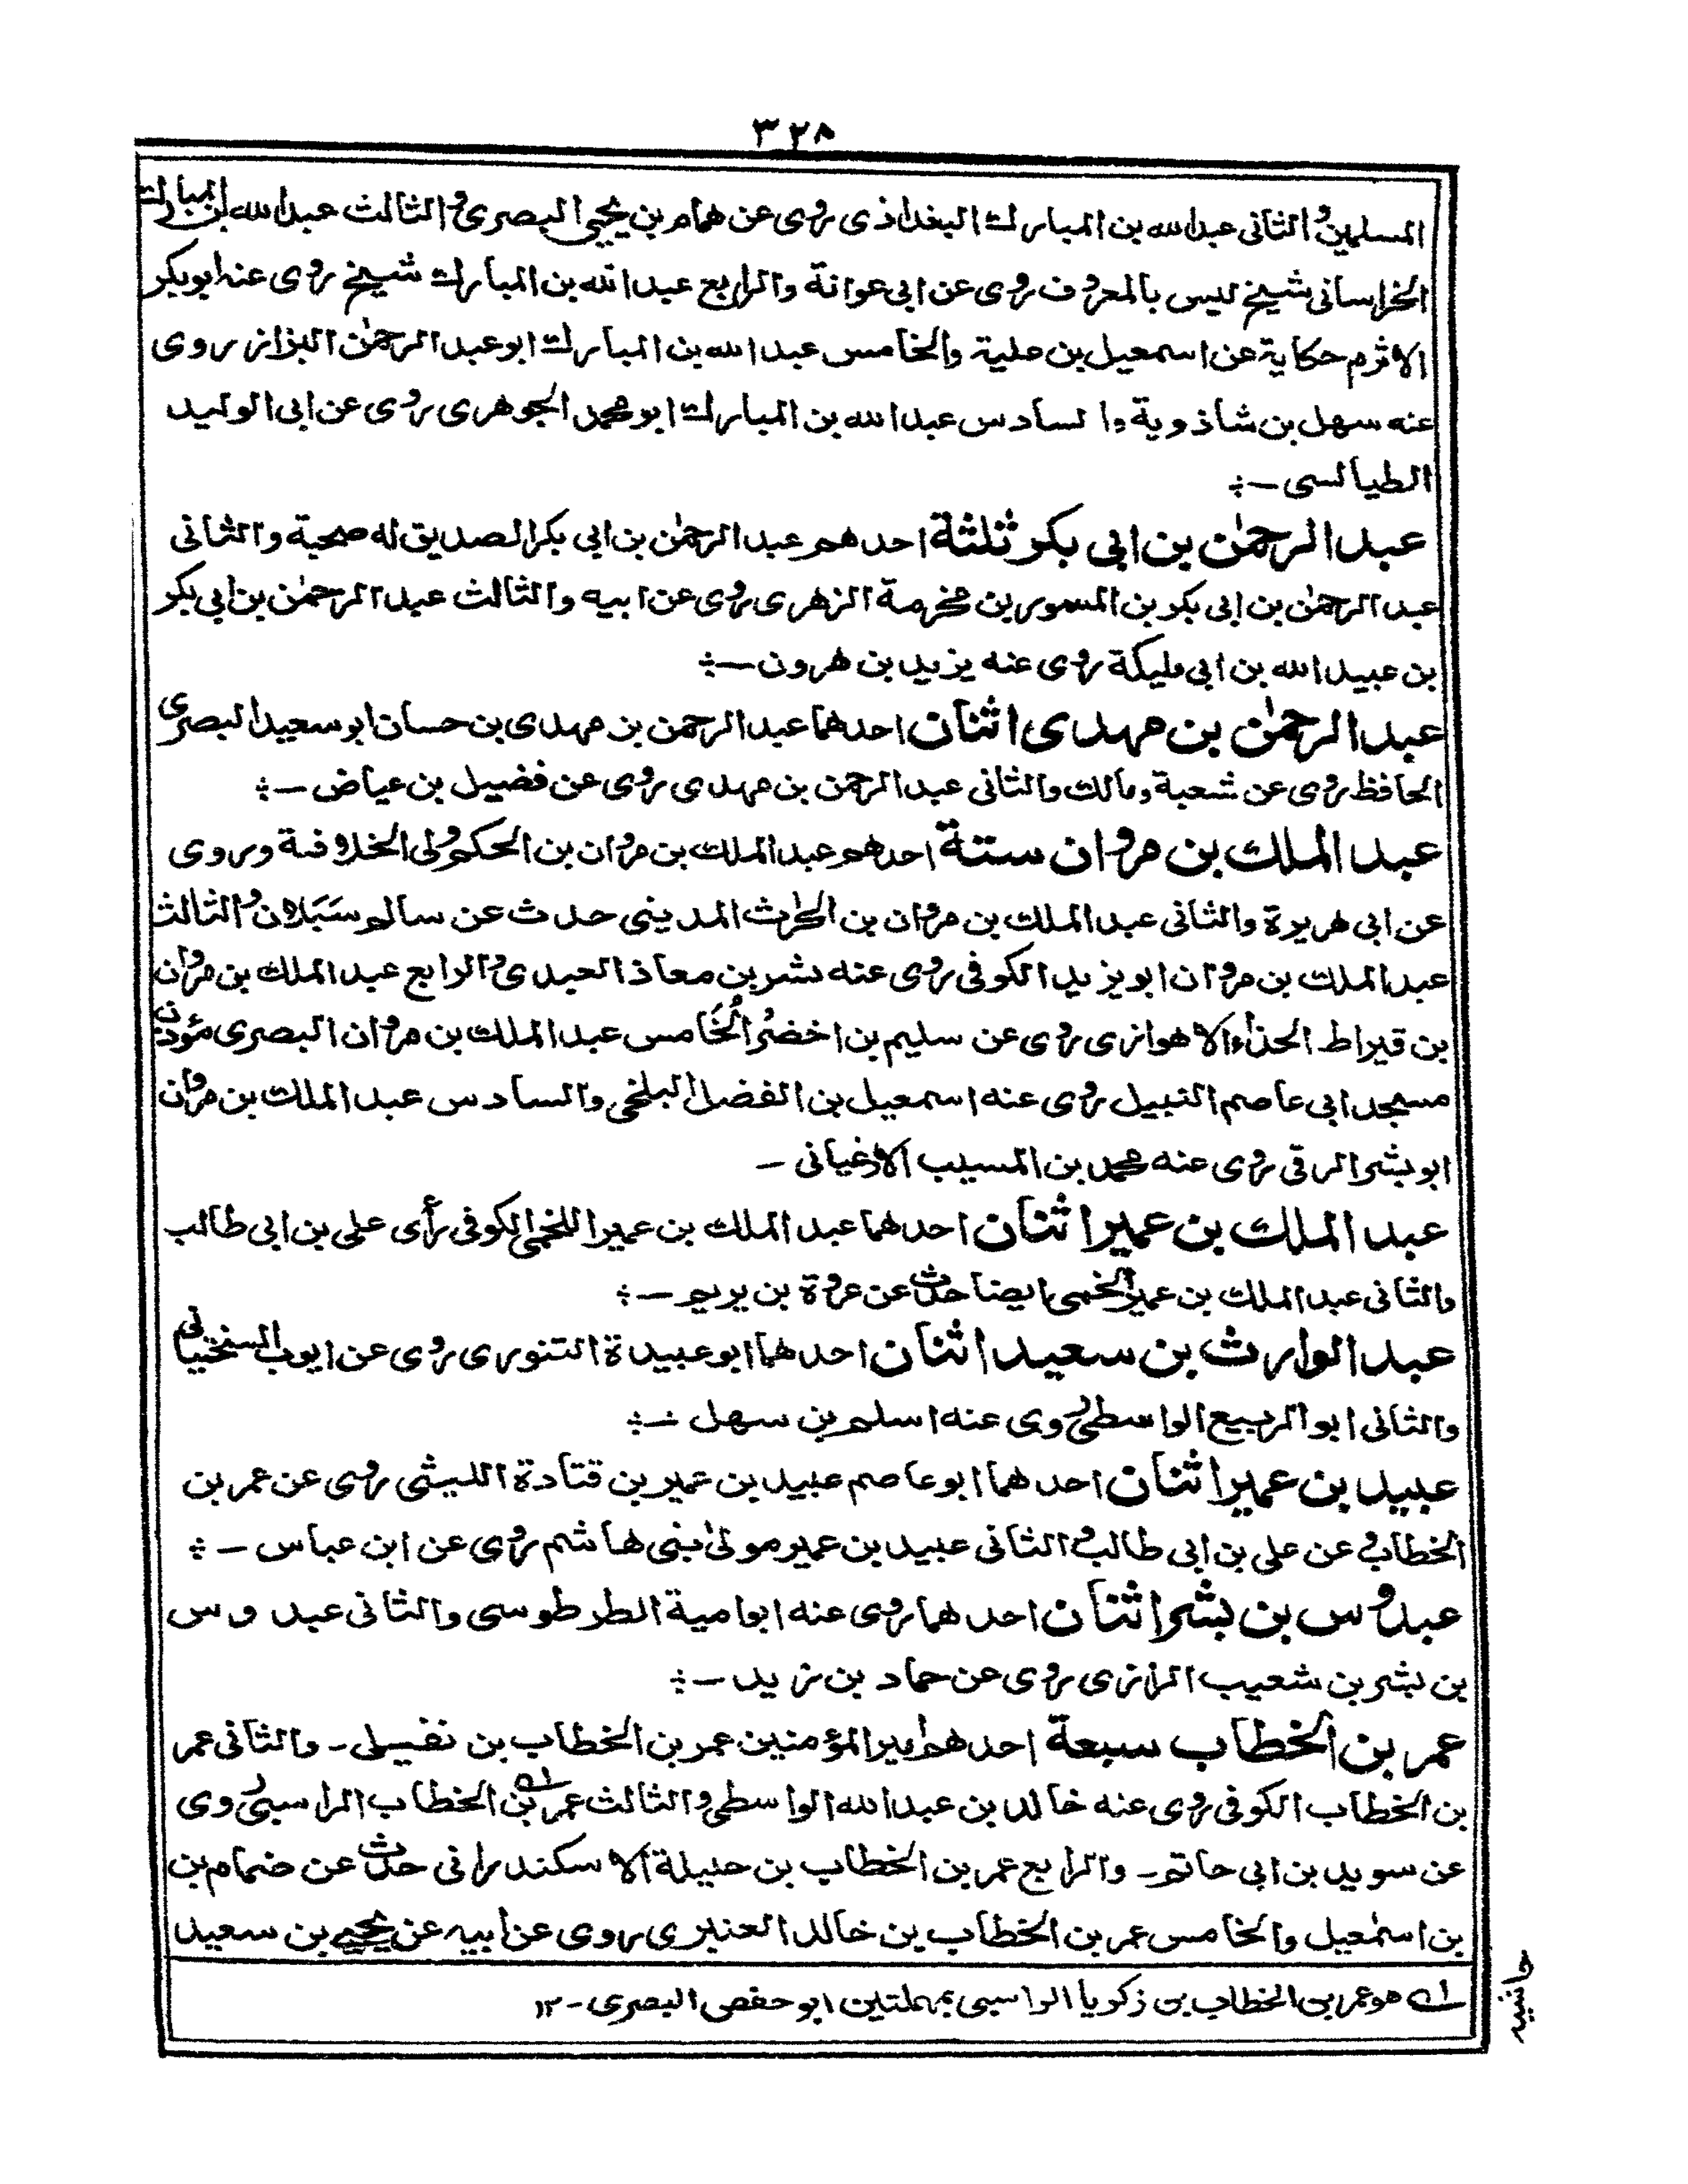 ٣٢٨
المسلمين والثانى عبدالله بن المبارك البغداذى روى عن همام بن يحيى البصرى والثالث عبدالله بن المبارك
الخراسانى شيخ ليس بالمعروف روى عن ابى عوانة والرابع عبدالله بن المبارك شيخ روى عنه ابوبكر
الاثرم حكاية عن اسمعيل بن علية والخامس عبدالله بن المبارك ابوعبدالرحمٰن البزاز روى
عنه سهل بن شاذوية والسادس عبدالله بن المبارك ابومحمد الجوهرى روى عن ابى الوليد
الطيالسى -
عبدالرحمٰن بن ابى بكر ثلثة احدهم عبدالرحمٰن بن ابى بكرالصديق له صحبة والثانى
عبدالرحمٰن بن ابى بكر بن المسور بن مخرمة الزهرى روى عن ابيه والثالث عبدالرحمٰن بن ابى بكر
بن عبيدالله بن ابى مليكة روى عنه يزيد بن هرون -
عبدالرحمٰن بن مهدى اثنان احدهما عبدالرحمن بن مهدى بن حسان ابوسعيدالبصرى
الحافظ روى عن شعبة ومالك والثانى عبدالرحمن بن مهدى روى عن فضيل بن عياض -
عبدالملك بن مروان ستة احدهم عبدالملك بن مروان بن الحكم ولى الخلافة وروى
عن ابى هريرة والثانى عبدالملك بن مروان بن الحٰرث المدينى حدث عن سالم سَبَلان والثالث
عبدالملك بن مروان ابويزيد الكوفى روى عنه بشر بن معاذ العبدى والرابع عبدالملك بن مروان
بن قيراط الحذاء الاهوازى روى عن سليم بن اخضر والخامس عبدالملك بن مروان البصرى مؤذن
مسجد ابى عاصم النبيل روى عنه اسمعيل بن الفضل البلخى والسادس عبدالملك بن مروان
ابوبشر الرقى روى عنه محمد بن المسيب الارغيانى -
عبدالملك بن عمير اثنان احدهما عبدالملك بن عمير اللخمى الكوفى رأى على بن ابى طالب
والثانى عبدالملك بن عمير الخمى ايضا حدث عن عروة بن يريم -
عبدالوارث بن سعيد اثنان احدهما ابوعبيدة التنورى روى عن ايوب السختيانى
والثانى ابوالربيع الواسطى روى عنه اسلم بن سهل -
عبيد بن عمير اثنان احدهما ابوعاصم عبيد بن عمير بن قتادة الليثى روى عن عمر بن
الخطاب وعن على بن ابى طالب والثانى عبيد بن عمير مولىٰ بنى هاشم روى عن ابن عباس -
عبدوس بن بشر اثنان احدهما روى عنه ابوامية الطرطوسى والثانى عبدوس
بن بشر بن شعيب الرازى روى عن حماد بن زيد -
عمر بن الخطاب سبعة احدهم امير المؤمنين عمر بن الخطاب بن نفيسلى - والثانى عمر
بن الخطاب الكوفى روى عنه خالد بن عبدالله الواسطى والثالث عمر بن الخطاب الراسبى روى
عن سويد بن ابى حاتم - والرابع عمر بن الخطاب بن حليلة الاسكندرانى حدث عن ضمام بن
بن اسمٰعيل والخامس عمر بن الخطاب بن خالد العنبرى روى عن ابيه عن يحيى بن سعيد
١ـه هو عمر بن الخطاب بن زكريا الراسبى بمهملتين ابوحفص البصرى - ١٢
حاشيه